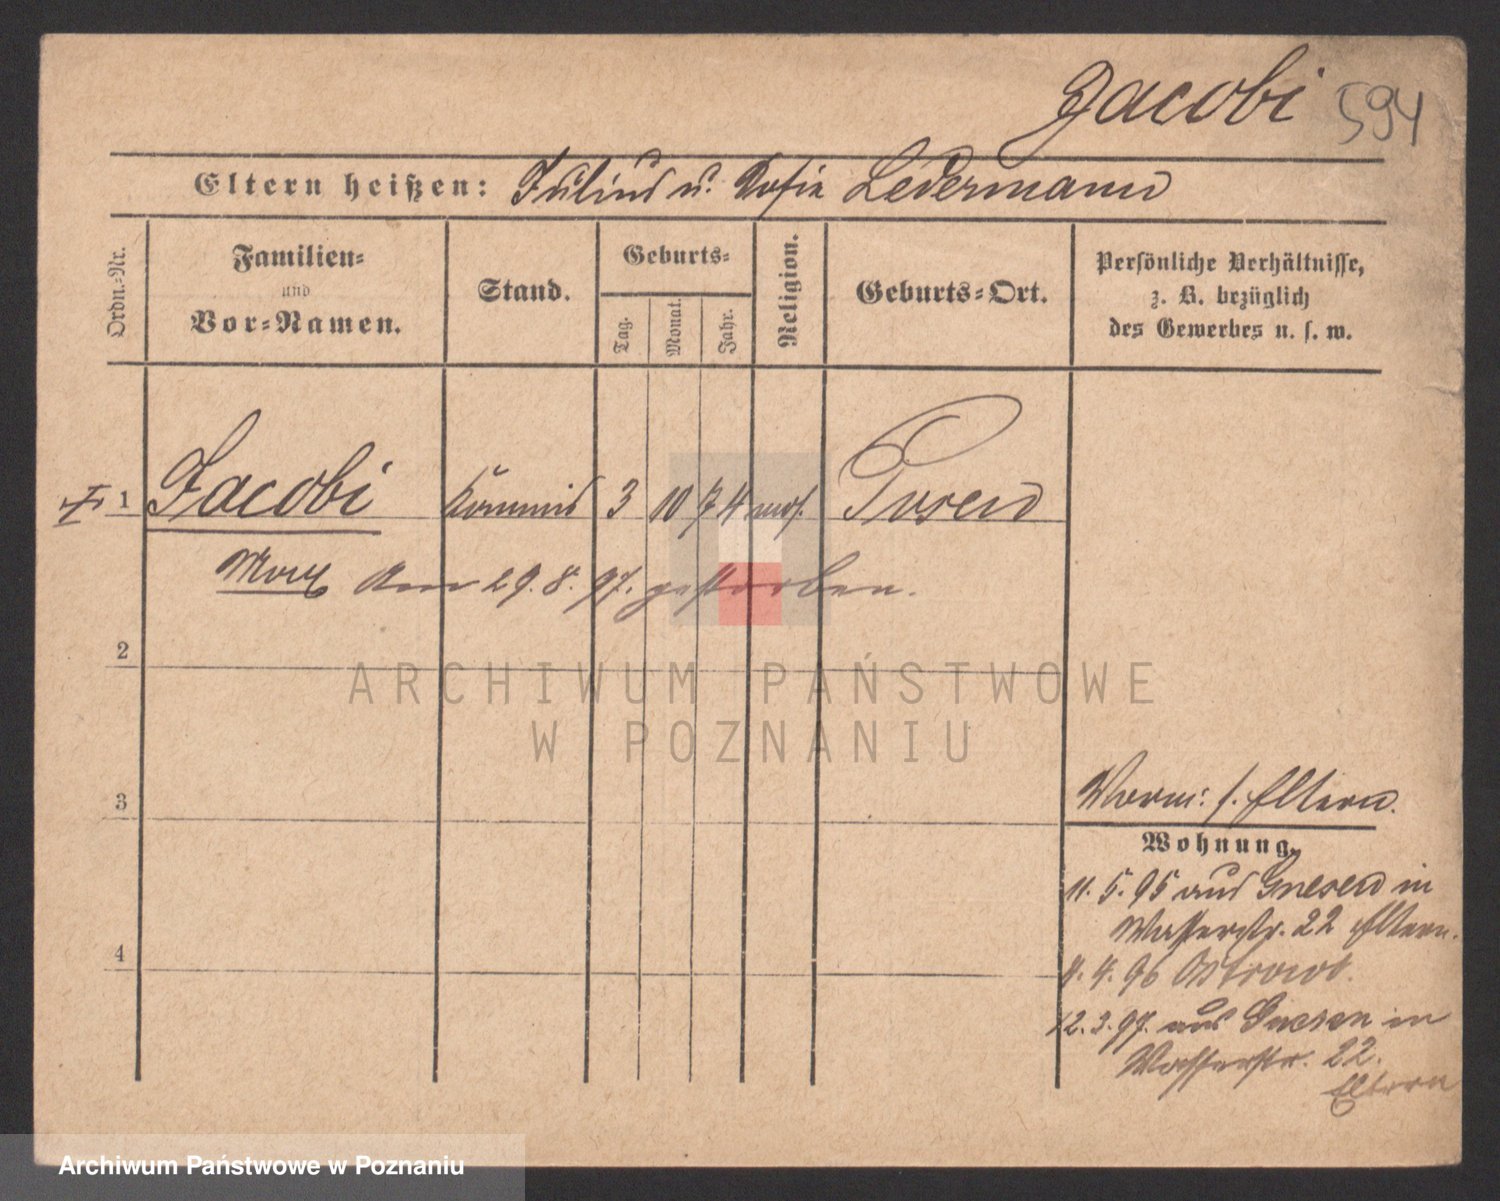 Jacobi 594
Eltern heißen: Julius u. Sofie Ledermann
Ordn.=Nr.
Familien=
und
Vor=Namen.
Stand.
Geburts=
Tag.
Monat.
Jahr.
Religion.
Geburts=Ort.
Persönliche Verhältnisse,
z. B. bezüglich
des Gewerbes u. s. w.
1 Jacobi Kommis 3 10 74 mos. Posen
Max am 29. 8. 97. gestorben.
2
3
4
Worm: s. Eltern.
Wohnung.
11. 5. 95 aus Gnesen in
Wasserstr. 22 Eltern.
4. 96 Ostrowo.
12. 3. 97. aus Gnesen in
Wasserstr. 22.
Eltern
ARCHIWUM PAŃSTWOWE
W POZNANIU
Archiwum Państwowe w Poznaniu